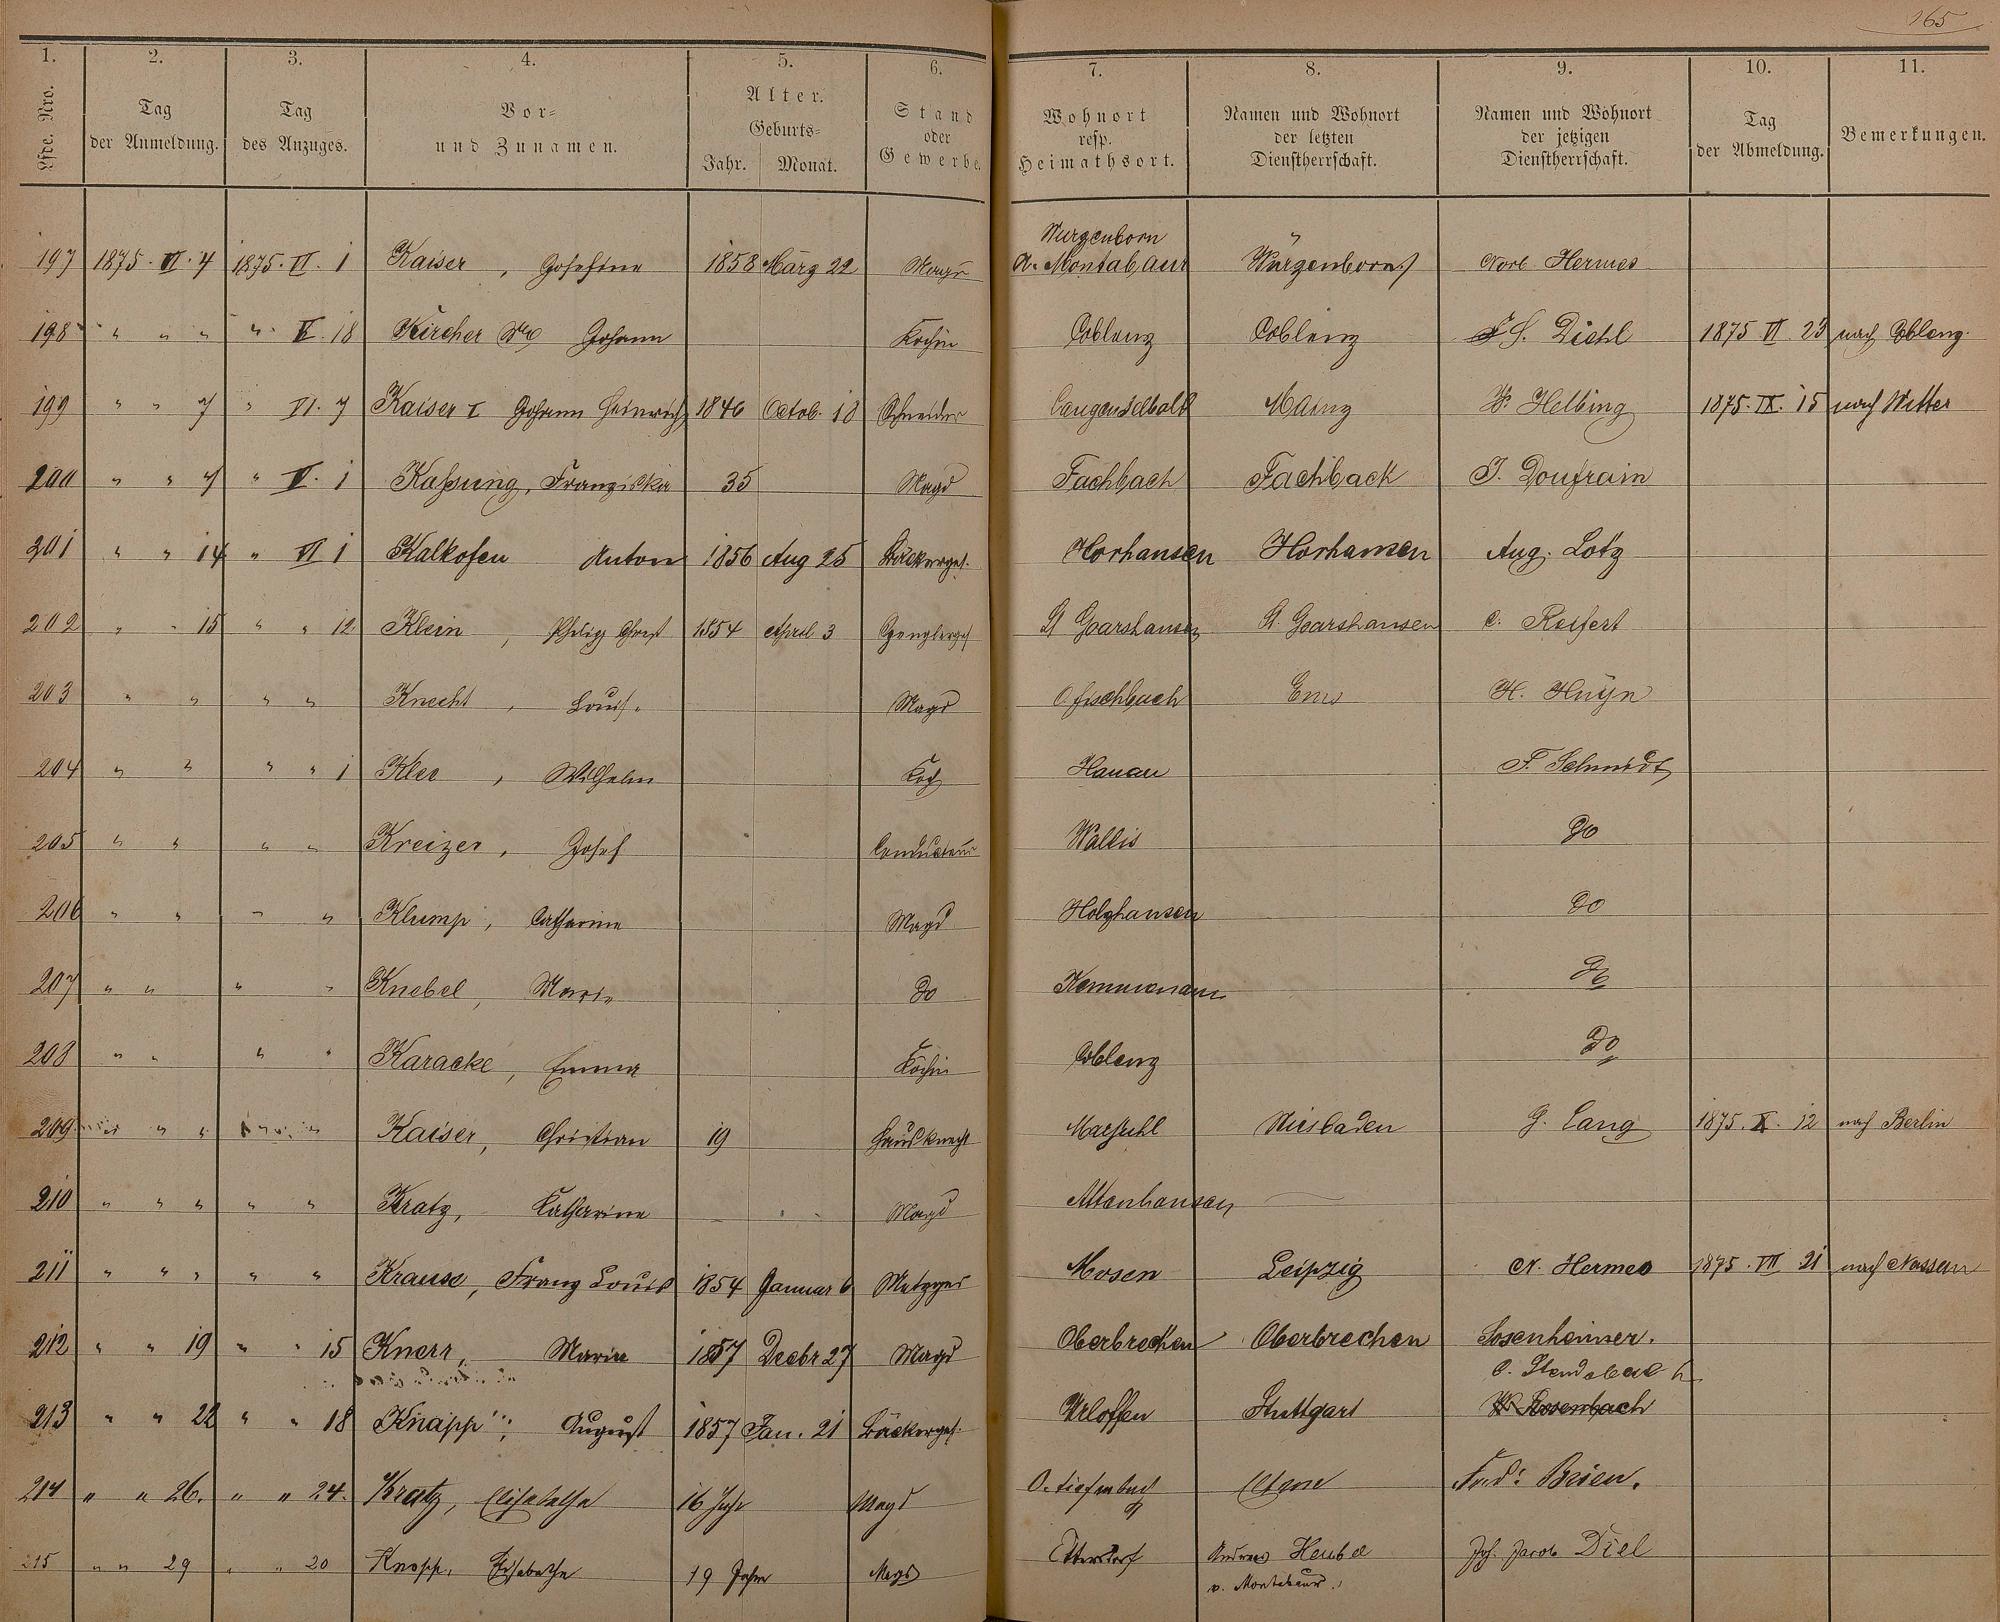 165
1. 2. 3. 4. 5. 6. 7. 8. 9. 10. 11.
Lfde. Nro. Tag der Anmeldung. Tag des Anzuges. Vor- und Zunamen. Alter. Geburts- Jahr. Monat. Stand oder Gewerbe. Wohnort resp. Heimathsort. Namen und Wohnort der letzten Dienstherrschaft. Namen und Wohnort der jetzigen Dienstherrschaft. Tag der Abmeldung. Bemerkungen.
197 1875. VI. 4 1875. VI. 1 Kaiser, Josefine 1858 März 22 Magd Wurzenborn A. Montabaur Würzenborn Norb. Hermes
198 " " " " V. 18 Kircher Johann Köchin Coblenz Coblenz S. Diehl 1875 VI 23 nach Coblenz.
199 " " 7 " VI. 7 Kaiser I Johann Heinrich 1846 Octob. 18 Schneider Langenselbold Mainz W. Helbing 1875. IX. 15 nach Wetter
200 " " 7 " V. 1 Kaßung, Franziska 35 Magd Fachbach Fachback J. Doufrain
201 " " 14 " VI 1 Kalkofen Anton 1856 Aug 25 Bäckerges. Horhausen Horhausen Aug. Lotz
202 " " 15 " " 12 Klein, Philip Christ 1854 April 3 Spenglerges St Goarshausen St. Goarshausen C. Reifert
203 " " " " Knecht, Louise Magd O. fischbach Ems H. Huÿn
204 " " " " 1 Klee, Wilhelm Koch Hanau F. Schmidt
205 " " " " Kreizer, Josef Conducteur Wallis do
206 " " " " Klump, Catharina Magd Holzhausen do
207 " " " " Knebel, Marie do Kemmenau do
208 " " " " Karacke, Emma Köchin Coblenz do
209 " " Kaiser, Christian 19 Hausknecht Marsuhl Wiesbaden G. Lang 1875. X. 12 nach Berlin
210 " " " " " Kratz, Catharine Magd Attenhausen
211 " " " " " Krause, Franz Louis 1854 Januar 6 Metzger Mosen Leipzig N. Hermes 1875. VII 21 nach Nassau
212 " " 19 " " 15 Knerr, Marie 1857 Decbr 27 Magd Oberbrechen Oberbrechen Sosenheimer.
213 " " 22 " " 18 Knapp, August 1857 Jan. 21 Bäckerges. Urloffen Stuttgart W. Rosenbach
214 " " 26. " " 24. Kratz, Elisabetha 16 Jahr Magd O. tiefenbach Eltern Ferd: Brien.
215 " " 29 " " 20 Knopp, Elisabetha 19 Jahre Magd Ettersdorf Andreas Heubel v. Montabaur. Joh. Jacob Diel